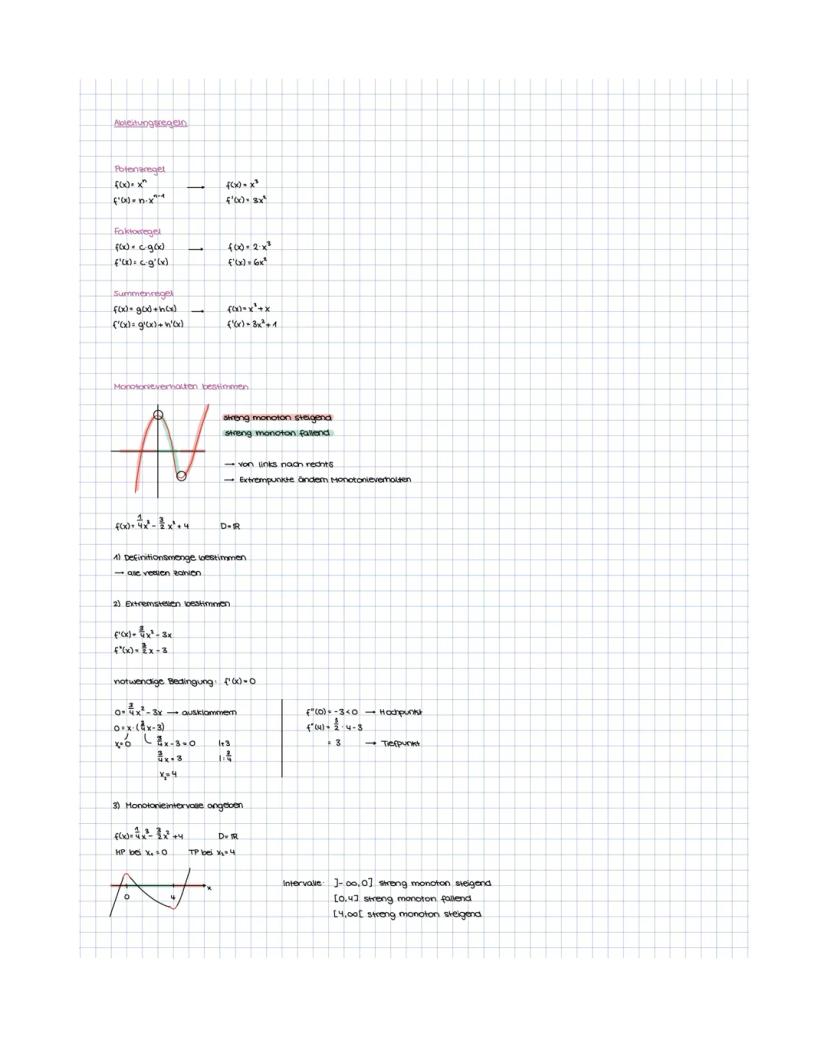 Ableitungsregeln
Potenzregel
f(x) = xⁿ → f(x) = x³
f'(x) = n·xⁿ⁻¹ f'(x) = 3x²
Faktorregel
f(x) = c·g(x) → f(x) = 2·x³
f'(x) = c·g'(x) f'(x) = 6x²
Summenregel
f(x) = g(x) + h(x) → f(x) = x³ + x
f'(x) = g'(x) + h'(x) f'(x) = 3x² + 1
Monotonieverhalten bestimmen
streng monoton steigend
streng monoton fallend
→ von links nach rechts
→ Extrempunkte ändern Monotonieverhalten
f(x) = 1/4x³ - 3/2x² + 4 D=ℝ
1) Definitionsmenge bestimmen
→ alle reellen Zahlen
2) Extremstellen bestimmen
f'(x) = 3/4x² - 3x
f''(x) = 3/2x - 3
notwendige Bedingung: f'(x) = 0
0 = 3/4x² - 3x → ausklammern
0 = x·(3/4x - 3)
x₁=0 3/4x - 3 = 0 |+3
3/4x = 3 |:3/4
x₂=4
f''(0) = -3 < 0 → Hochpunkt
f''(4) = 3/2·4 - 3
= 3 → Tiefpunkt
3) Monotonieintervalle angeben
f(x) = 1/4x³ - 3/2x² + 4 D=ℝ
HP bei x₁=0 TP bei x₂=4
x
0 4
Intervalle: ]-∞,0] streng monoton steigend
[0,4] streng monoton fallend
[4,∞[ streng monoton steigend